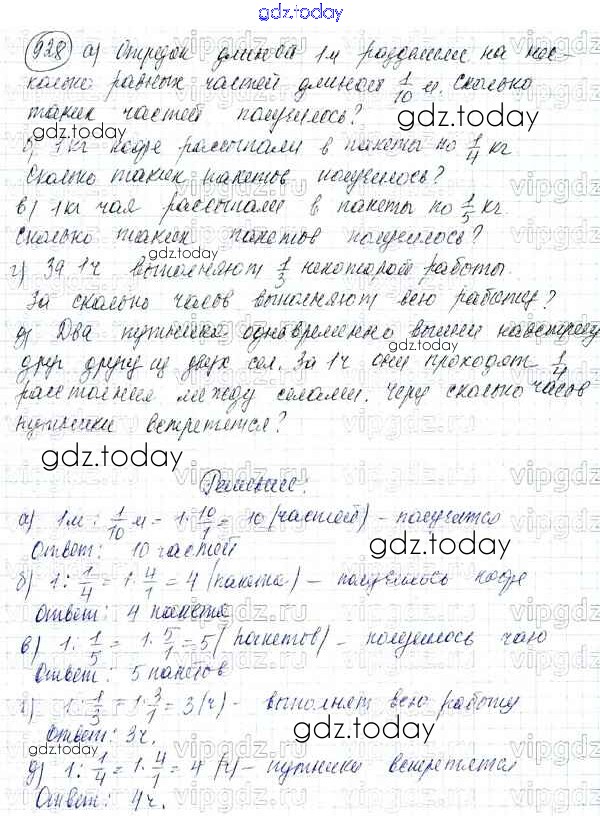 gdz.today
928 а) Отрезок длиной 1м разделили на нес-
колько равных частей длиной 1/10 м. Сколько
таких частей получилось?
gdz.today
б) 1 кг кофе рассыпали в пакеты по 1/4 кг
gdz.today
Сколько таких пакетов получилось?
в) 1 кг чая рассыпали в пакеты по 1/5 кг.
Сколько таких пакетов получилось?
gdz.today
г) За 1ч выполняют 1/3 некоторой работы.
За сколько часов выполняют всю работу?
д) Два путника одновременно вышли навстречу
друг другу из двух сел. За 1ч они проходят 1/4
gdz.today
расстояния между селами. Через сколько часов
путники встретятся?
gdz.today
Решение:
а) 1м : 1/10 м = 1·10/1 = 10 (частей) – получится
gdz.today
Ответ: 10 частей
б) 1 : 1/4 = 1·4/1 = 4 (пакета) – получилось кофе
Ответ: 4 пакета
gdz.today
в) 1 : 1/5 = 1·5/1 = 5 (пакетов) – получилось чаю
Ответ: 5 пакетов
г) 1 : 1/3 = 1·3/1 = 3 (ч) – выполнят всю работу
gdz.today
Ответ: 3ч.
gdz.today
д) 1 : 1/4 = 1·4/1 = 4 (ч) – путники встретятся
Ответ: 4ч.
gdz.today